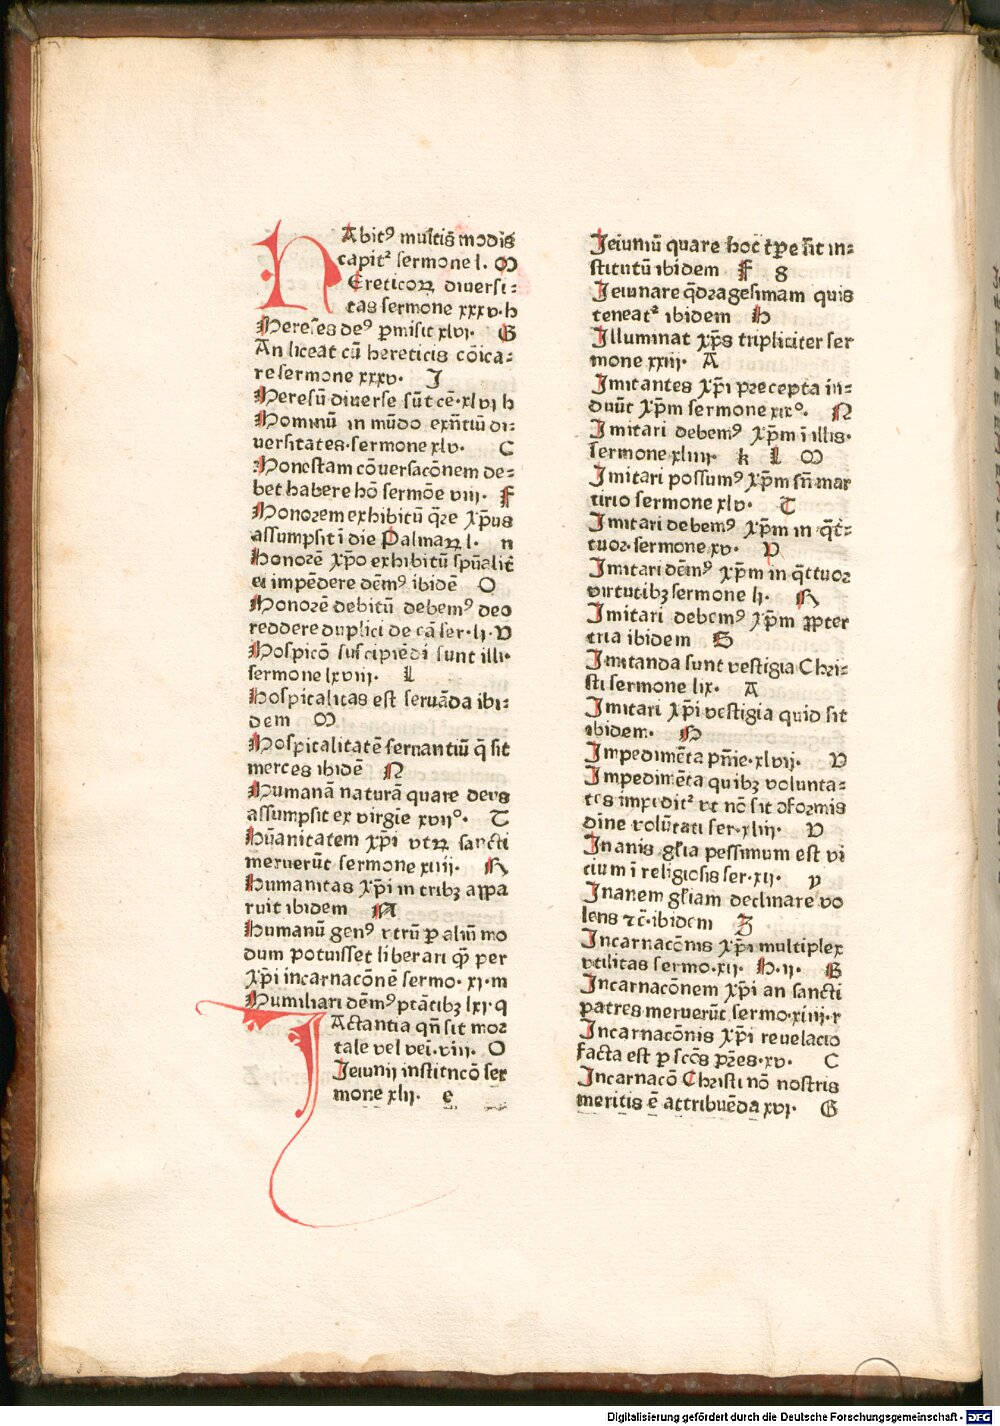 HAbitꝰ multis modis
capit᷑ sermone l. M
Ereticoꝝ diuersi⸗
tas sermone xxxv. h
Hereses deꝰ ꝑmisit xlvi. G
An liceat cū hereticis cōica⸗
re sermone xxxv. I
Heresū diuerse sūt cē. xlvi h
Hominū in mūdo exn̄tiū di⸗
uersitates. sermone xlv. C
Honestam cōuersacōnem de⸗
bet habere hō sermōe viii. F
Honorem exhibitū q̄re xp̄us
assumpsit ī die Palmaꝝ l. n
Honorē xp̄o exhibitū spūalit̄
ei impēdere dēmꝰ ibidē O
Honorē debitū debemꝰ deo
reddere duplici de cā ser. li. V
Hospicō suscipiēdi sunt illi.
sermone lxviii. L
Hospitalitas est seruāda ibi⸗
dem M
Hospitalitatē seruantiū q̄ sit
merces ibidē N
Humanā naturā quare deus
assumpsit ex virgie xvii°. T
Hūanitatem xp̄i vtꝝ sancti
meruerūt sermone xiiii. K
Humanitas xp̄i in tribꝫ appa
ruit ibidem A
Humanū genꝰ vtrū ꝑ aliū mo
dum potuisset liberari q̄ꝫ per
xp̄i incarnacōnē sermo. xi. m
Humiliari dēmꝰ ptātibꝫ lxi. q
IActantia qn̄ sit mor
tale vel vei. viii. O
Ieiunij institucō ser
mone xlii. e
Ieiuniū quare hoc tꝑe sit in⸗
stitutū ibidem F g
Ieiunare q̄dragesimam quis
teneat᷑ ibidem h
Illuminat xp̄s tripliciter ser
mone xxiij. A
Imitantes xp̄i precepta in⸗
duūt xp̄m sermone xix°. N
Imitari debemꝰ xp̄m ī illis.
sermone xliiii. k L M
Imitari possumꝰ xp̄m sn̄ mar
tirio sermone xlv. T
Imitari debemꝰ xp̄m in q̄t⸗
tuor. sermone xv. P
Imitari dēmꝰ xp̄m in q̄ttuor
virtutibꝫ sermone li. K
Imitari debemꝰ xp̄m ꝓpter
tria ibidem S
Imitanda sunt vestigia Chri⸗
sti sermone lix. A
Imitari xp̄i vestigia quid sit
ibidem. N
Impedimēta pn̄ie. xlvij. V
Impedimēta quibꝫ volunta⸗
tes impedit᷑ vt nō sit ↄformis
diuīe volūtati ser. xliii. V
Inanis gl̄ia pessimum est vi
cium ī religiosis ser. xij. y
Inanem gl̄iam declinare vo
lens ⁊c̄. ibidem Z
Incarnacōnis xp̄i multiplex
vtilitas sermo. xij. H. ij. B
Incarnacōnem xp̄i an sancti
patres meruerūt sermo. xiiij. r
Incarnacōnis xp̄i reuelacio
facta est ꝑ scōs pr̄es. xv. C
Incarnacō Christi nō nostris
meritis ē attribuēda xvj. G
Digitalisierung gefördert durch die Deutsche Forschungsgemeinschaft - DFG